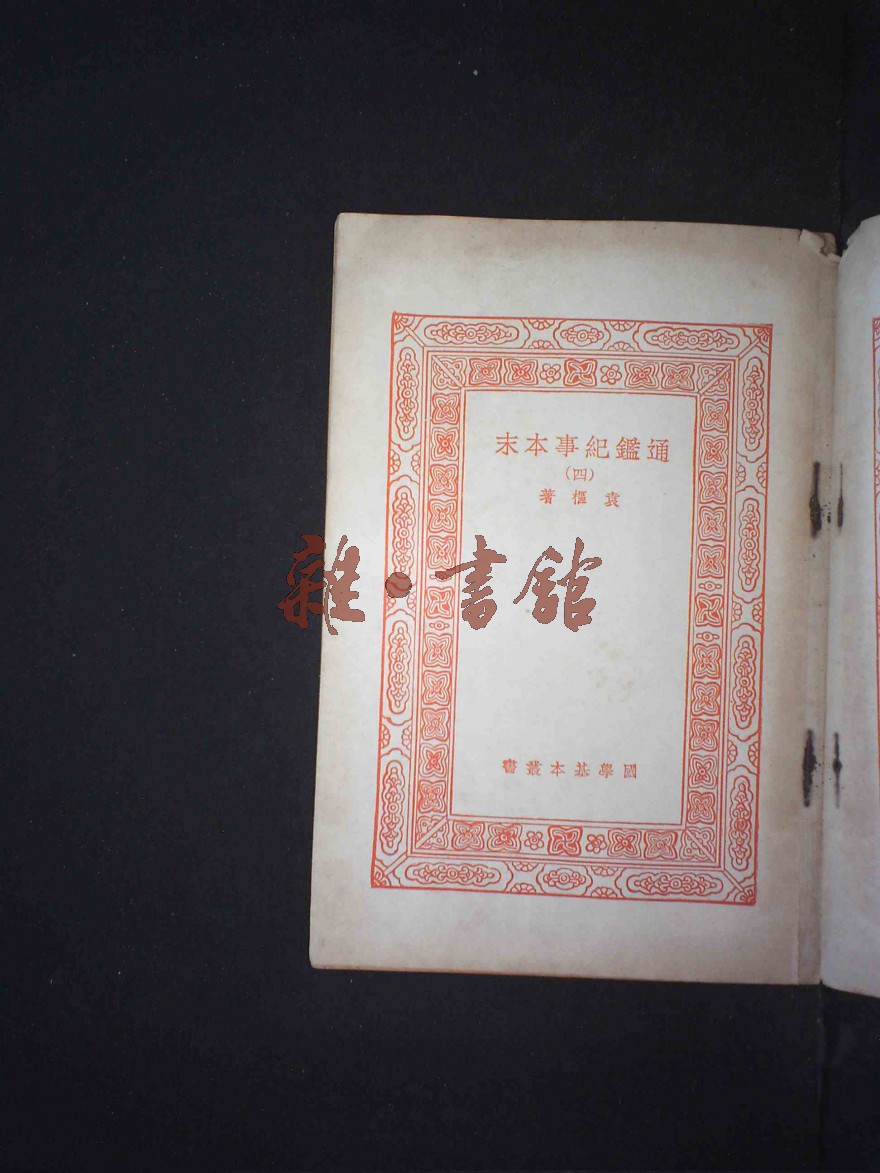 通鑑紀事本末
(四)
袁樞著
雜·書館
國學基本叢書